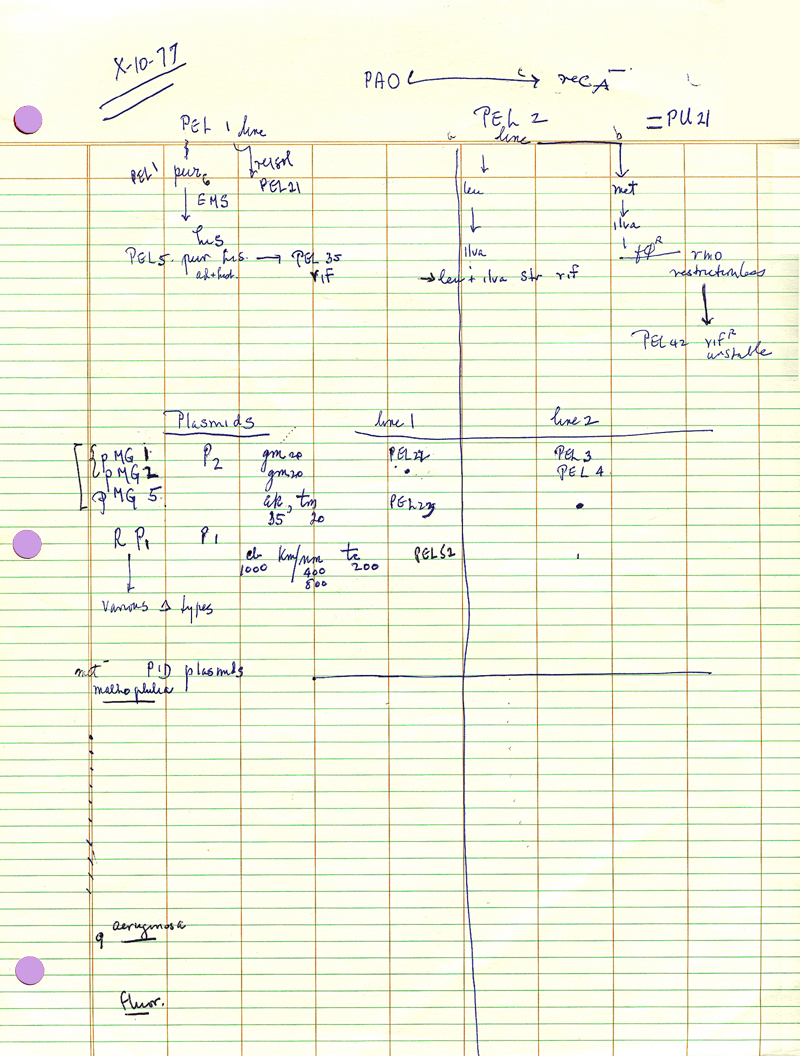 X-10-77
PAO → recA⁻
PEL 1 line
PEL 2 line
= PU21
a
b
PEL 1 pur6
PEL21
leu
met
EMS
his
ilva
ilva
PEL5. pur his. → PEL35
rif
→ leu + ilva str rif
fØR rmo
restrictionless
PEL42 rifR
unstable
Plasmids line 1 line 2
pMG 1 P2 gm20 PEL 3
pMG 2 gm20 PEL 4
pMG 5. ak, tm PEL23
35 20
R P1 P1
cb km/nm tc PEL52
1000 400 200
800
various Δ types
met⁻ PID plasmids
maltophilia
9 aeruginosa
fluor.